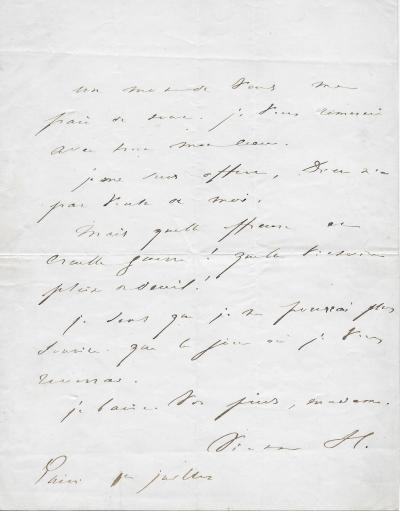 un mot de vous me
fait du bien. je vous remercie
avec tout mon cœur.
je me suis offert, Dieu n'a
pas voulu de moi.
Mais quelle affreuse et
cruelle guerre ! quelle victoire
pleine de deuil !
je sens que je ne pourrai plus
sourire que le jour où je vous
reverrai.
je baise vos pieds, madame.
H.
Paris 1er juillet